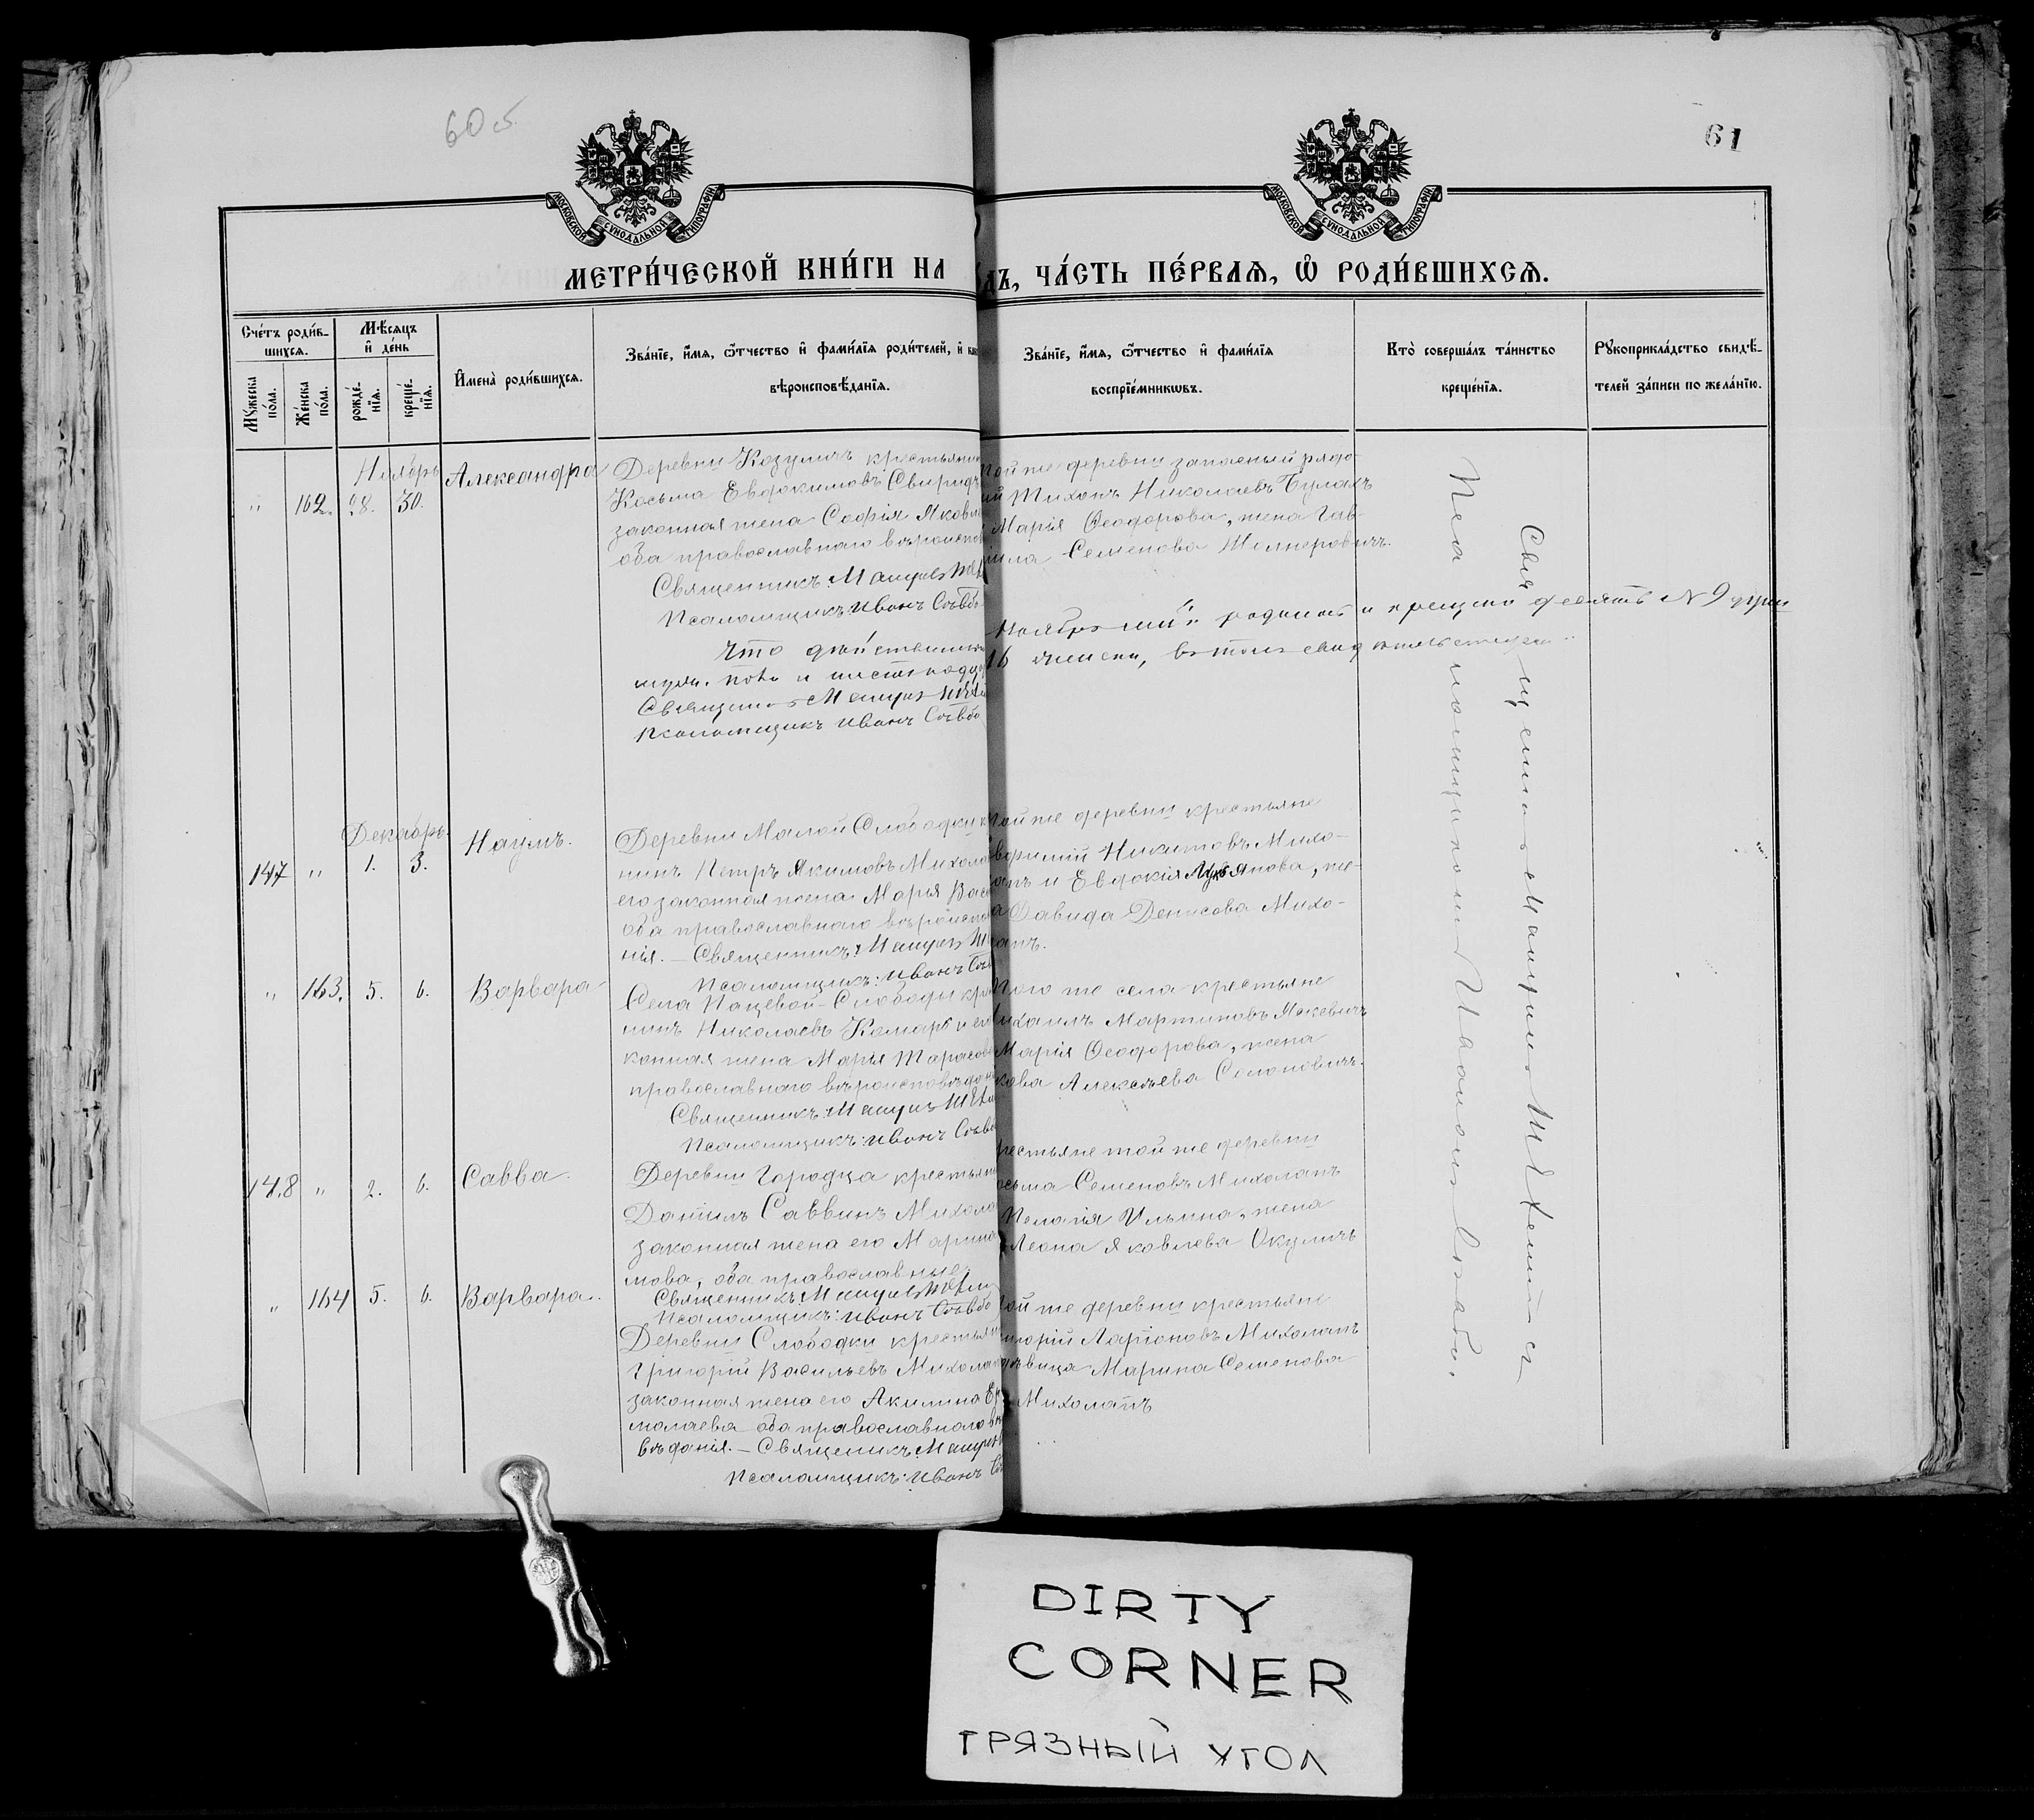 60 об.
61
МОСКОВСКОЙ СѴНОДАЛЬНОЙ ТИПОГРАФІИ
МОСКОВСКОЙ СѴНОДАЛЬНОЙ ТИПОГРАФІИ
МЕТРИ́ЧЕСКОЙ КНИ́ГИ НА
ДЪ, ЧА́СТЬ ПЕ́РВАЯ, Ѽ РОДИ́ВШИХСЯ.
Сче́тъ роди́в-
шихся.
Мѣ́сяцъ
и҆ де́нь
Мꙋ́жеска по́ла.
Же́нска по́ла.
рожде́-
нїя.
креще́-
нїя.
И҆мена̀ роди́вшихся.
Зва́нїе, и҆́мя, ѻ҆́тчество и҆ фами́лїя роди́телей, и҆ как
вѣроисповѣ́данїя.
Зва́нїе, и҆́мя, ѻ҆́тчество и҆ фами́лїя
воспрїе́мникωвъ.
Кто̀ соверша́лъ та́инство
креще́нїя.
Рꙋкоприкла́дство свидѣ́-
телей за́писи по жела́нїю.
Ноябрь
" 162. 28. 30.
Александра
Деревни Козуличъ крестьянин
Косьма Евдокимовъ Свирид
законная жена Софія Яковл
оба православнаго вѣроиспов
Священникъ:
Псаломщикъ: Иванъ
той же деревни запасный рядо-
й Тихонъ Николаевъ Булахъ
Марія Ѳеодорова, жена Гав-
ила Семенова Шолнеровичъ.
Что дѣйствительно
Ноябрь родился и крещено девять №9
16 женска, въ томъ свидѣтельствуемъ
Псаломщикъ Иванъ
Декабрь.
147 " 1. 3.
Наумъ.
Деревни Малой Слободки к
нинъ Петръ Якимовъ Михола
его законная жена Марья Вас
оба православнаго вѣроиспов
нія. — Священникъ:
Псаломщикъ: Иванъ
той же деревни крестьяне
Никитовъ Михо-
апъ и Евдокія Лукьянова, же-
а Давида Денисова Михо-
апъ.
" 163. 5. 6.
Варвара
Села Пацевой-Слободы кре
нинъ Николаевъ Комаръ и его
конная жена Марья Тарасова
православнаго вѣроисповѣдан
Священникъ:
Псаломщикъ: Иванъ
того же села крестьяне
ихаилъ Мартиновъ Яцкевичъ
Марія Ѳеодорова, жена
кова Алексѣева Солоновичъ.
148 " 2. 6.
Савва.
Деревни Городца крестьян
Даніилъ Саввинъ Михола
законная жена его Марина
мова, оба православные.
Священникъ:
Псаломщикъ: Иванъ
рестьяне той же деревни
осьма Семеновъ Михолапъ
Пелагія Ильина, жена
Леона Яковлева Окуличъ
" 164 5. 6.
Варвара.
Деревни Слободки крестьян
Григорій Васильевъ Михола
законная жена его Акилина Ер
молаева оба православнаго вѣ
вѣданія. — Священикъ
Псаломщикъ: Иванъ
той же деревни крестьяне
игорій Ларіоновъ Михолапъ
дѣвица Марина Семенова
Михолапъ
DIRTY
CORNER
ГРЯЗНЫЙ УГОЛ